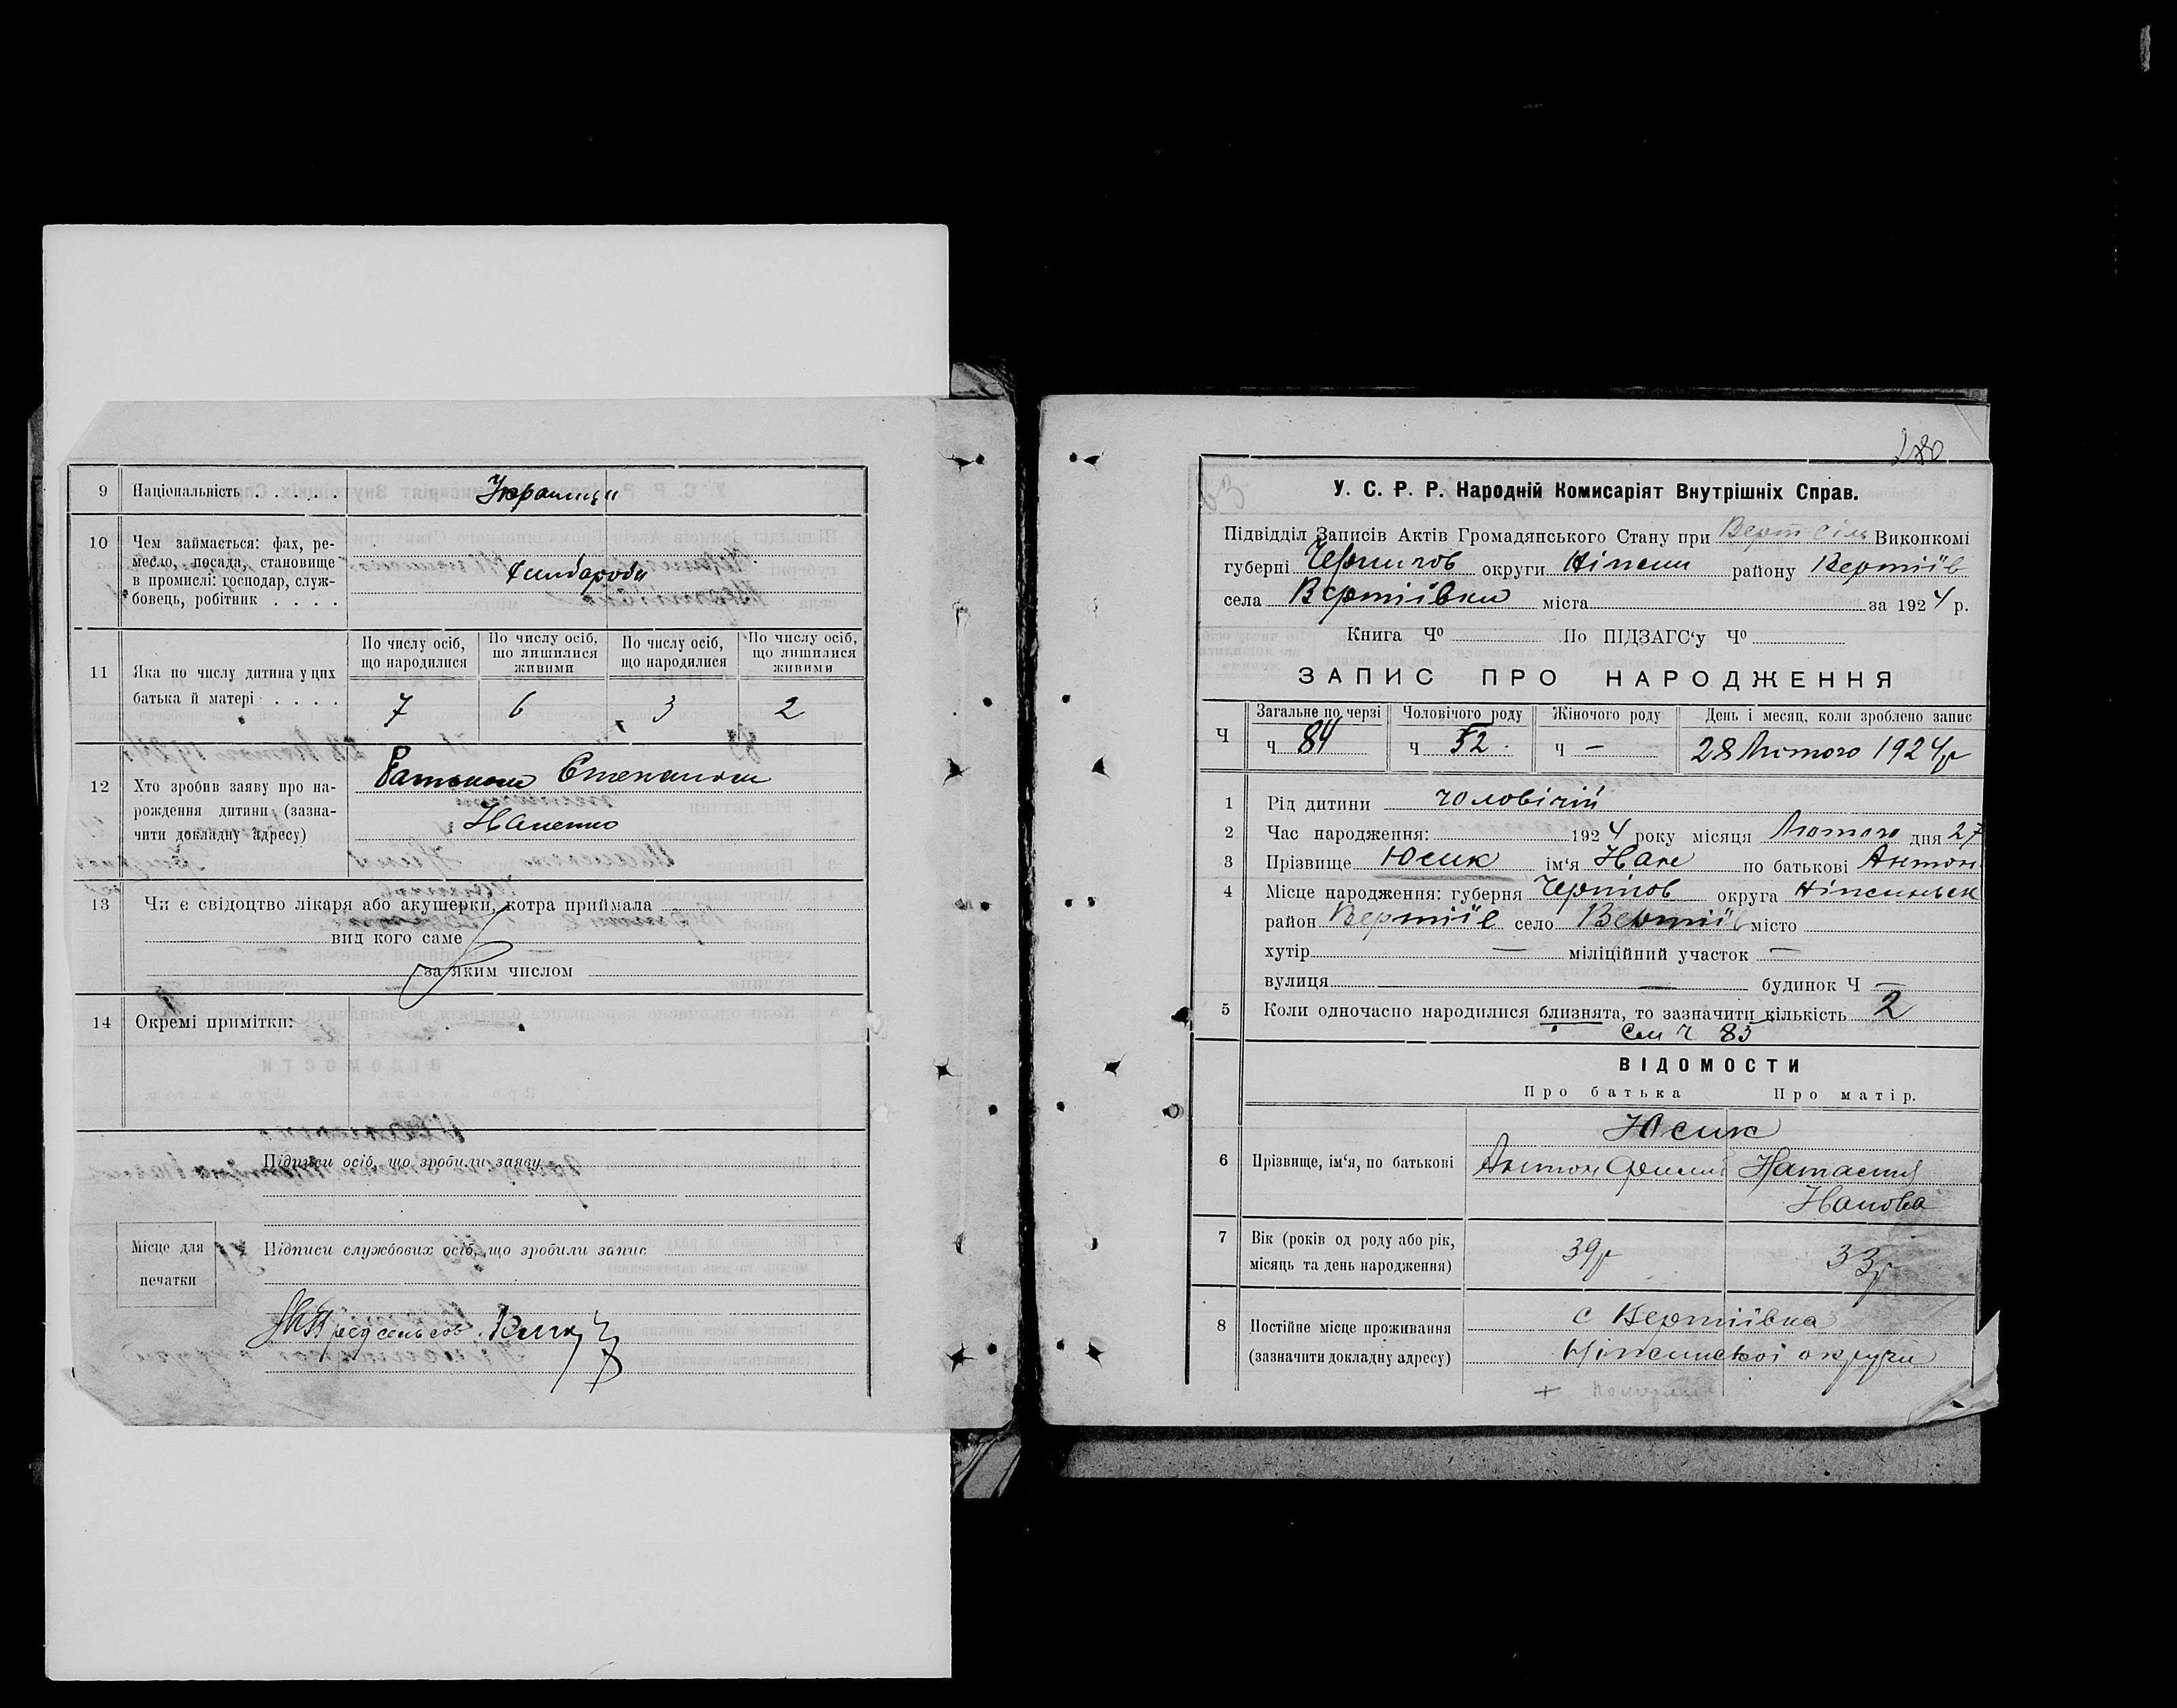 9 Національність . . . . . Українци
10 Чем займається: фах, ре-
месло, посада, становище
в промислі: господар, служ-
бовець, робітник . . . .
11 Яка по числу дитина у цих
батька й матері . . . .
По числу осіб, що народилися
По числу осіб, що лишилися живими
По числу осіб, що народилися
По числу осіб, що лишилися живими
7 6 3 2
12 Хто зробив заяву про на-
рождення дитини (зазна-
чити докладну адресу)
Степанов
13 Чи є свідоцтво лікаря або акушерки, котра приймала
вид кого саме
за яким числом
14 Окремі примітки:
Підписи осіб, що зробили заяву
Місце для
печатки
Підписи службових осіб, що зробили запис
280
У. С. Р. Р. Народній Комисаріят Внутрішніх Справ.
Підвідділ Записів Актів Громадянського Стану при Верт сіль Виконкомі
губерні Чернигов округи Ніжин району Вертіїв
села Вертіївки міста за 1924 р.
Книга Чº По ПІДЗАГС‘у Чº
ЗАПИС ПРО НАРОДЖЕННЯ
Ч
Загальне по черзі Чоловічого роду Жіночого роду День і месяц, коли зроблено запис
ч 84 ч 52. ч — 28 Лютого 1924р
1 Рід дитини чоловічій
2 Час народження: 1924 року місяця Лютого дня 27
3 Прізвище Юсик ім‘я Иван по батькові Антон
4 Місце народження: губерня Чернігов округа Ніжинськ
район Вертіїв село Вертіїв місто
хутір — міліційний участок —
вулиця — будинок Ч —
5 Коли одночасно народилися близнята, то зазначити кількість 2
См ч 83
ВІДОМОСТИ
Про батька Про матір.
Юсик
6 Прізвище, ім‘я, по батькові Антон Настасия
Иванова
7 Вік (років од роду або рік,
місяць та день народження)
39р 33р
8 Постійне місце проживання
(зазначити докладну адресу)
с Вертіївка
Ніжинської округи
+